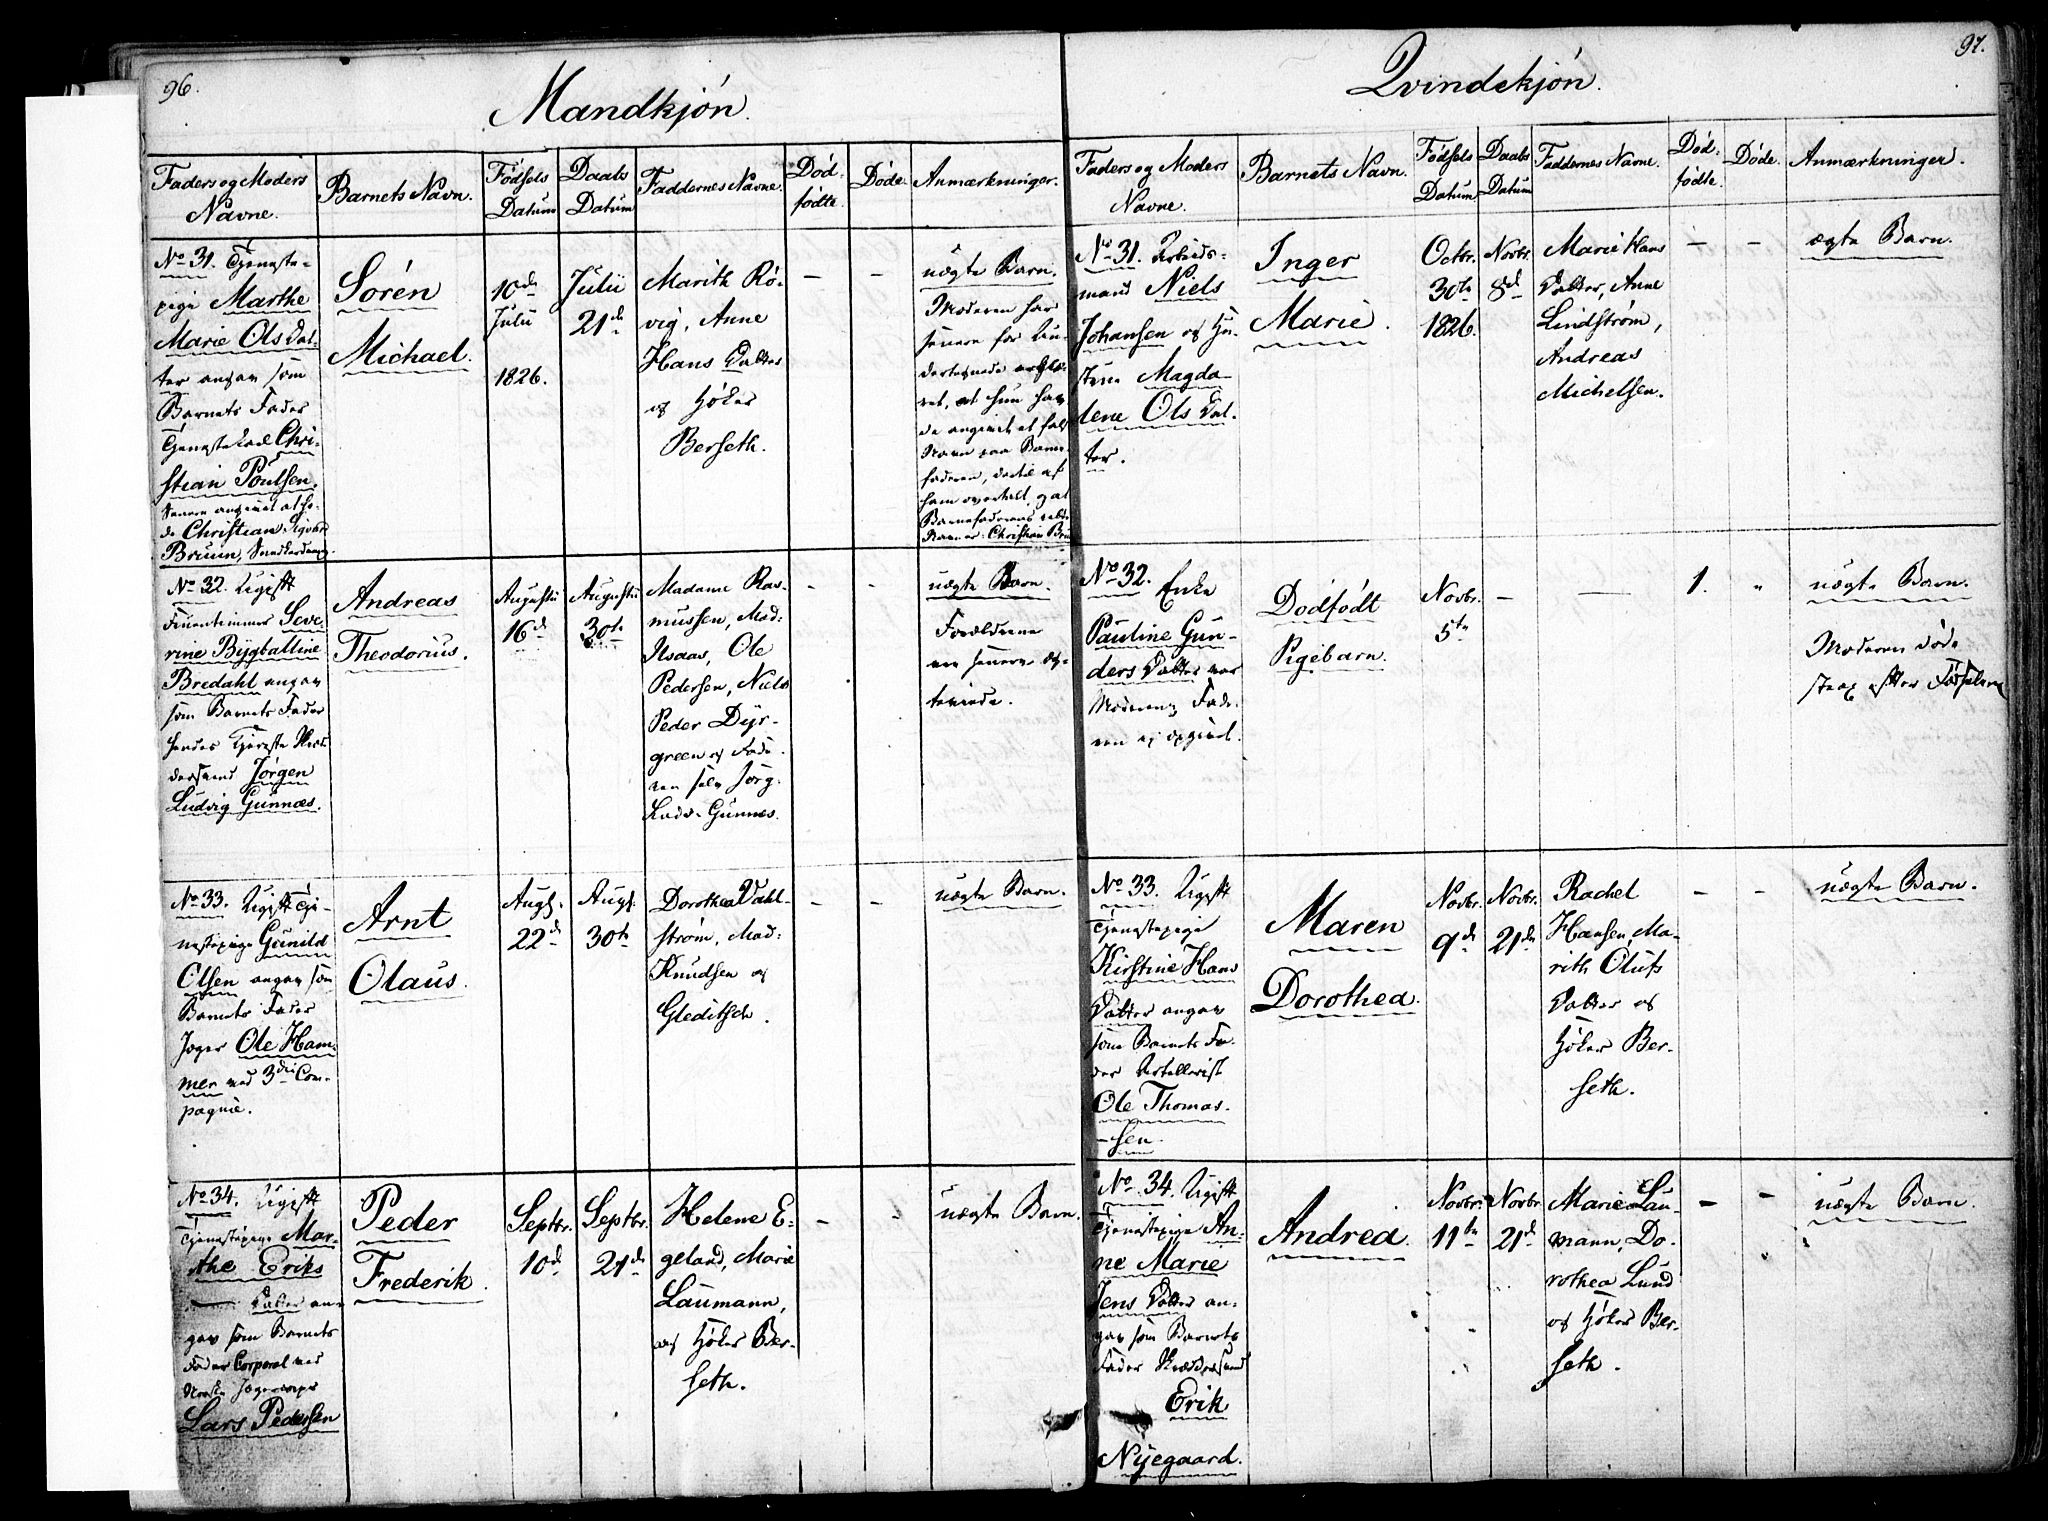 96.
Mandkjön.
Faders og Moders
Navne.
Barnets Navn.
Födsels
Datum
Daabs
Datum
Faddernes Navne.
Död-
födte.
Döde.
Anmærkninger.
No 31. Tjeneste-
pige Marthe
Marie Ols Dat-
ter angav som
Barnets Fader
Tjenestekarl Chri-
stian Poulsen.
Senere angivet at he-
de Christian Sigvard
Bruun,
Sören
Michael.
10de
Julii
1826.
Julii
21de
Marith Rö-
vig, Anne
Hans Datter
og Höker
Berseth.
-
-
uægte Barn.
Moderen har
senere for Un-
dertegnede erklæ-
ret, at hun hav-
de angivet et falsk
Navn paa Barne-
faderen, dertil af
ham overtalt, og at
Barnefaderens rette
Navn er Christian Bru
No 32. Ugift
Fruentimmer Seve-
rine Bygballine
Bredahl angav
som Barnets Fader
hendes Kjæreste Skræd
dersvend Jörgen
Ludvig Gunnæs.
Andreas
Theodorius.
Augustii
16de
Augustii
30te
Madame Ras-
mussen, Mad:
Isaas, Ole
Pedersen, Niels
Peder Dyr-
green og Fade-
ren selv Jörg-
Ludv. Gunnæs.
-
-
uægte Barn.
Forældrene
ere senere æg-
teviede.
No 33. Ugift Tje-
nestepige Gunild
Olsen angav som
Barnets Fader
Jæger Ole Ham-
mer ved 3die Com-
pagnie.
Arnt
Olaus.
Augs.
22de
Augs.
30te
Dorothea Vahl-
ström, Mad:
Knudsen og
Gleditsch.
-
-
uægte Barn.
No 34. Ugift
Tjenestepige Mar-
the Eriks
Datter an-
gav som Barnets
Fader Corporal ved
Norske Jægercorps
Lars Pedersen
Peder
Frederik.
Septbr.
10de
Septbr.
21de
Helene E-
geland, Marie
Laumann,
og Höker Ber-
seth.
-
-
uægte Barn.
97.
Qvindekjön.
Faders og Moders
Navne.
Barnets Navn.
Födsels
Datum
Daabs
Datum
Faddernes Navne.
Död-
födte.
Döde.
Anmærkninger.
No 31. Arbeids-
mand Niels
Johansen og Hu-
stru Magda-
lene Ols Dat-
ter.
Inger
Marie.
Octbr.
30te
1826.
Novbr.
8de
Marie Hans
Datter, Anne
Lindström,
Andreas
Michelsen.
-
-
ægte Barn.
No 32. Enke
Pauline Gun-
ders Datter var
Moderen, Fade-
ren ej opgivet.
Dödfödt
Pigebarn.
Novbr.
5te
-
-
1.
"
uægte Barn.
Moderen döde
strax efter Födselen
No 33. Ugift
Tjenestepige
Kirstine Hans
Datter angav
som Barnets Fa-
der Artillerist
Ole Thomas-
sen.
Maren
Dorothea.
Novbr.
9de
Novbr.
21de
Rachel
Hansen, Ma-
rith Olufs
Datter og
Höker Ber-
seth.
-
-
uægte Barn.
No 34. Ugift
Tjenestepige An-
ne Marie
Jens Datter an-
gav som Barnets
Fader Skræddersvend
Erik
Nyegaard.
Andrea
Novbr.
11te
Novbr.
21de
Marie Lau-
mann, Do-
rothea Lund
og Höker Ber-
seth.
-
-
uægte Barn.